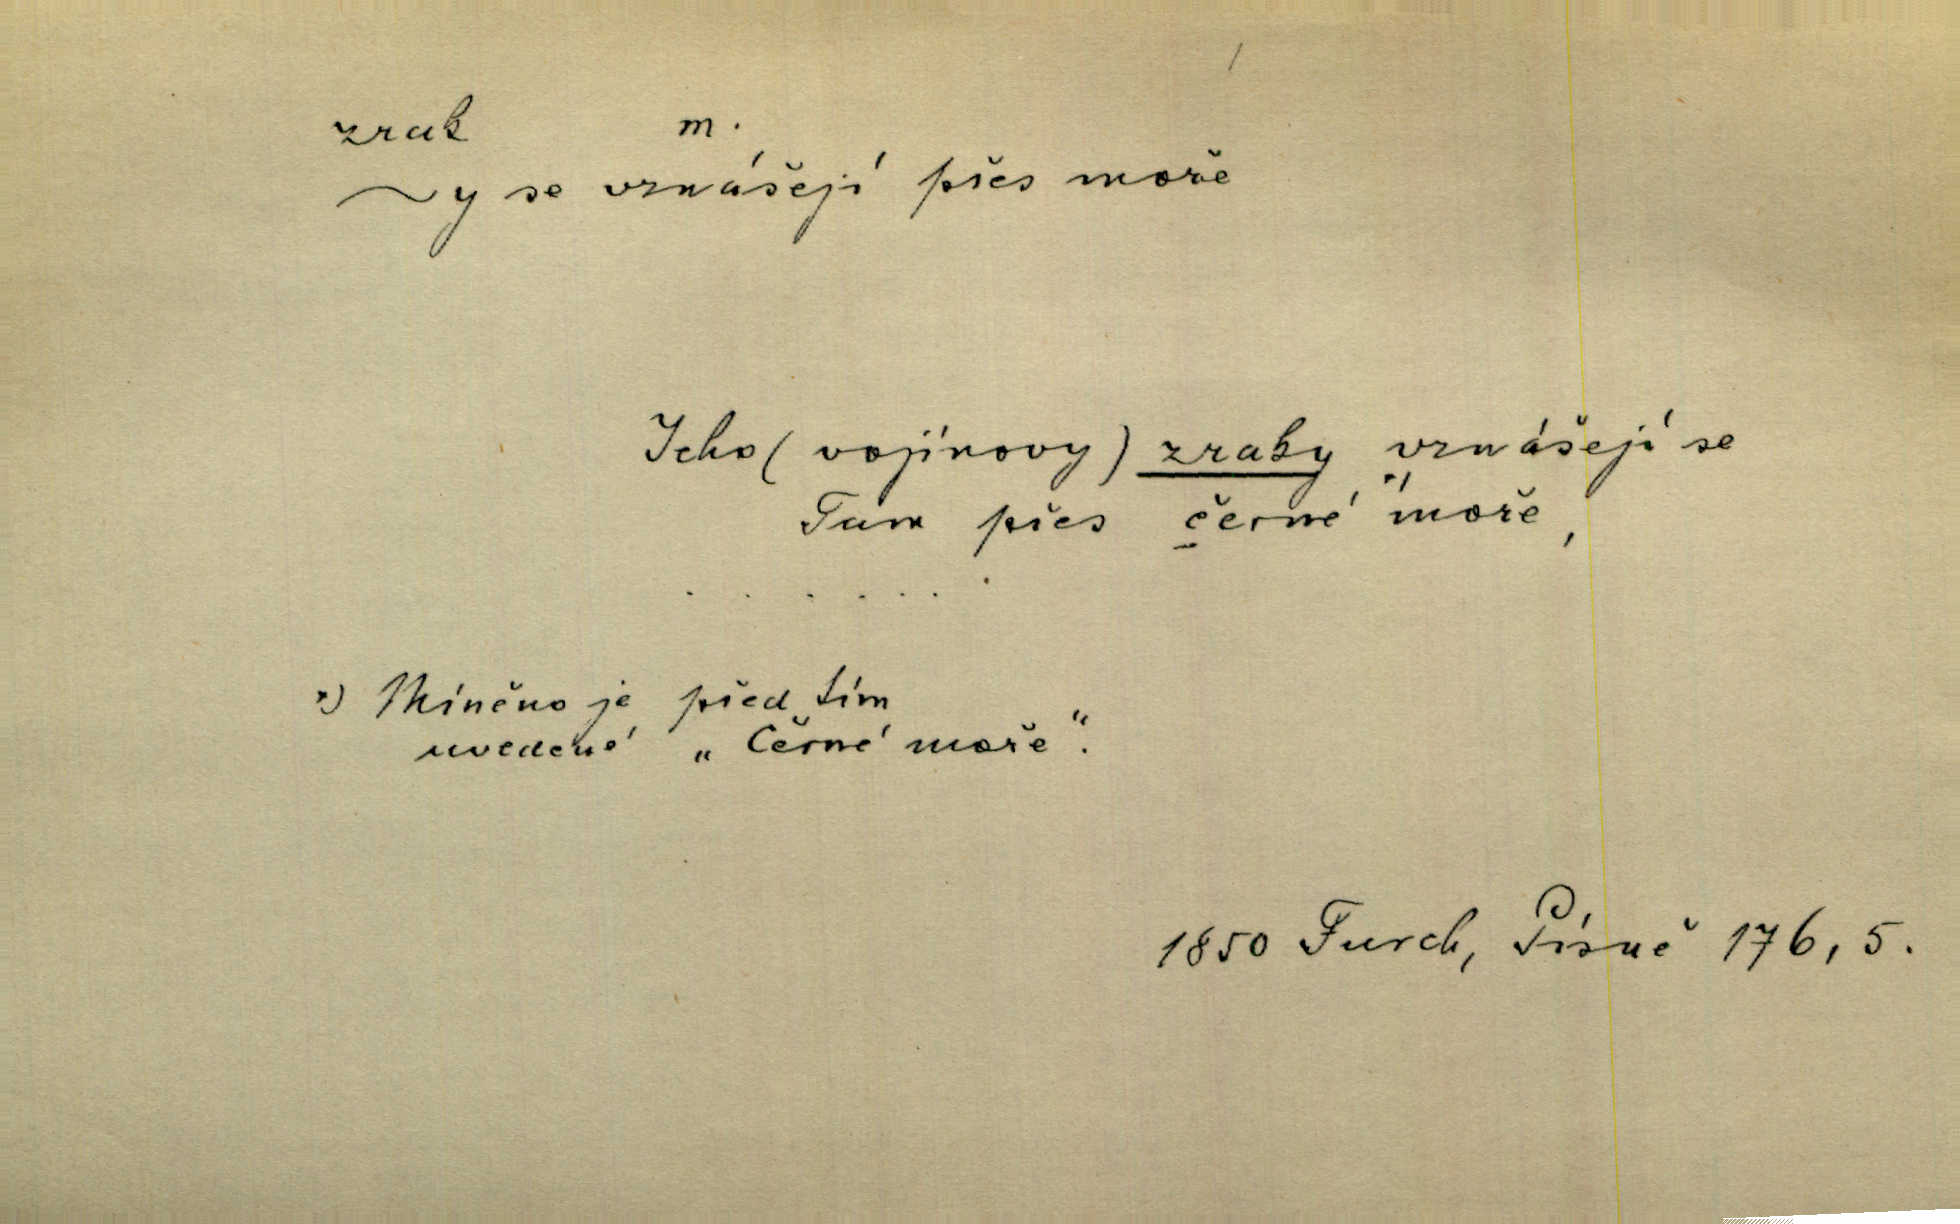 zrak m.
~y se vznášejí přes moře
Jeho (vojínovy) zraky vznášejí se
Tam přes černé *) moře,
. . . . . . .
*) Míněno je před tím
uvedené „Černé moře“.
1850 Furch, Písně 176, 5.